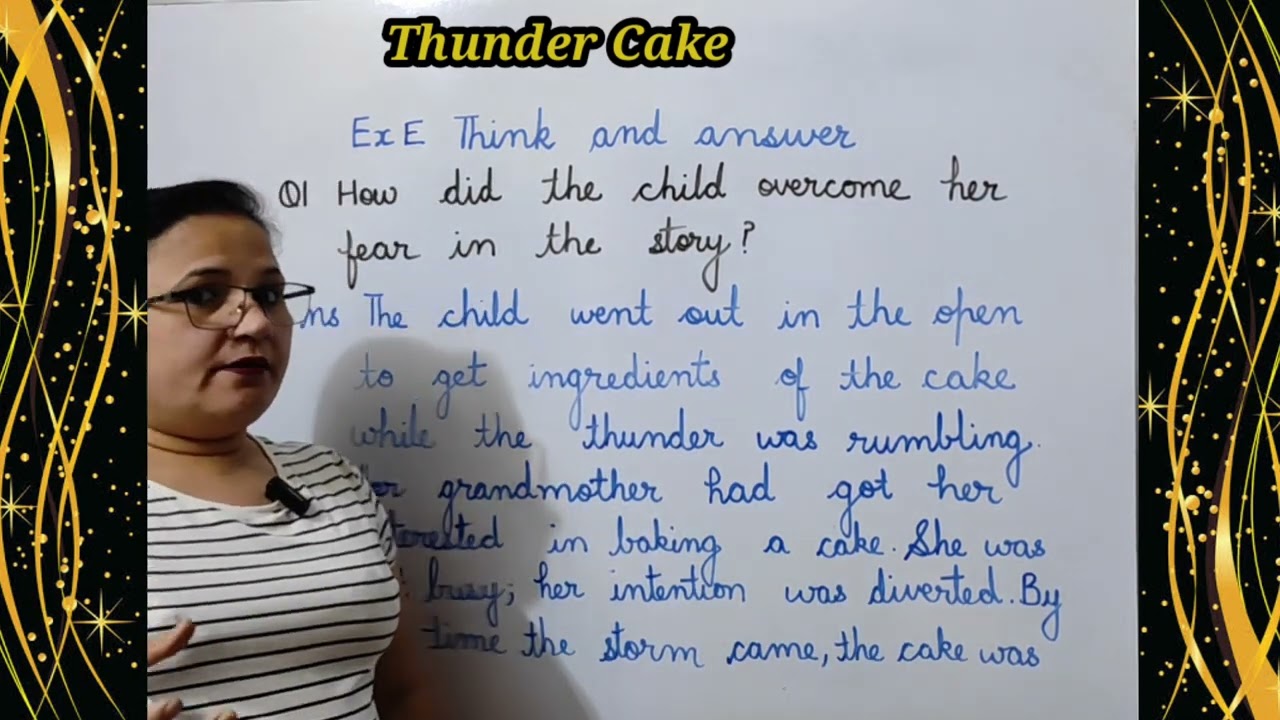 Thunder Cake
Ex E Think and answer
Q1 How did the child overcome her
fear in the story?
Ans The child went out in the open
to get ingredients of the cake
while the thunder was rumbling.
grandmother had got her
in baking a cake. She was
busy; her intention was diverted. By
time the storm came, the cake was